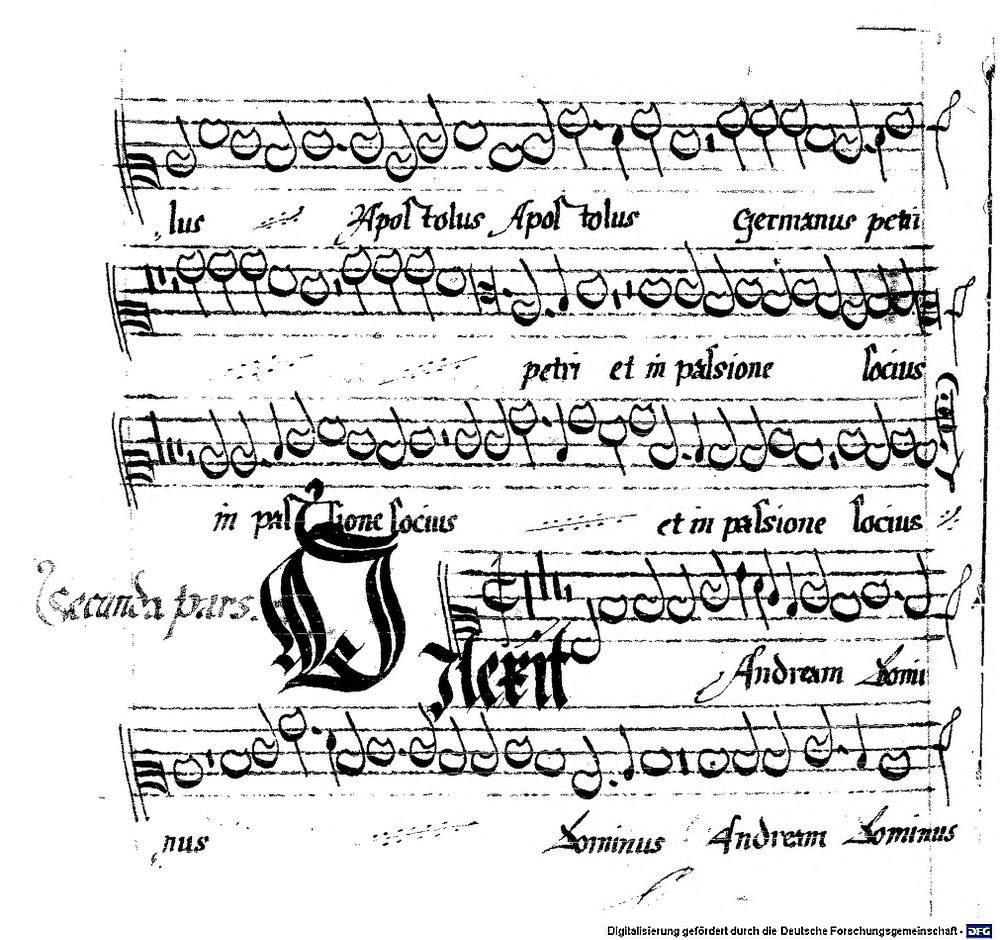 lus Apostolus Apostolus Germanus petri
petri et in passione socius
in passione socius et in passione socius
Secunda pars.
Andream Domi
nus Dominus Andream Dominus
Digitalisierung gefördert durch die Deutsche Forschungsgemeinschaft - DFG